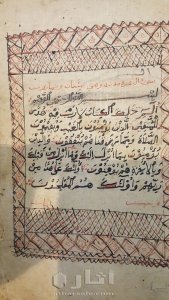 سورة البقرة مدنية وهي مائتان وثمانون
بسم الله الرحمن الرحيم
الم ذلك الكتاب لا ريب فيه هدى
للمتقين الذين يؤمنون بالغيب ويقيمون
الصلاة ومما رزقناهم ينفقون والذين
يؤمنون بما أنزل إليك وما أنزل من قبلك
وبالآخرة هم يوقنون أولئك على هدى من
ربهم وأولئك هم المفلحون
آثار